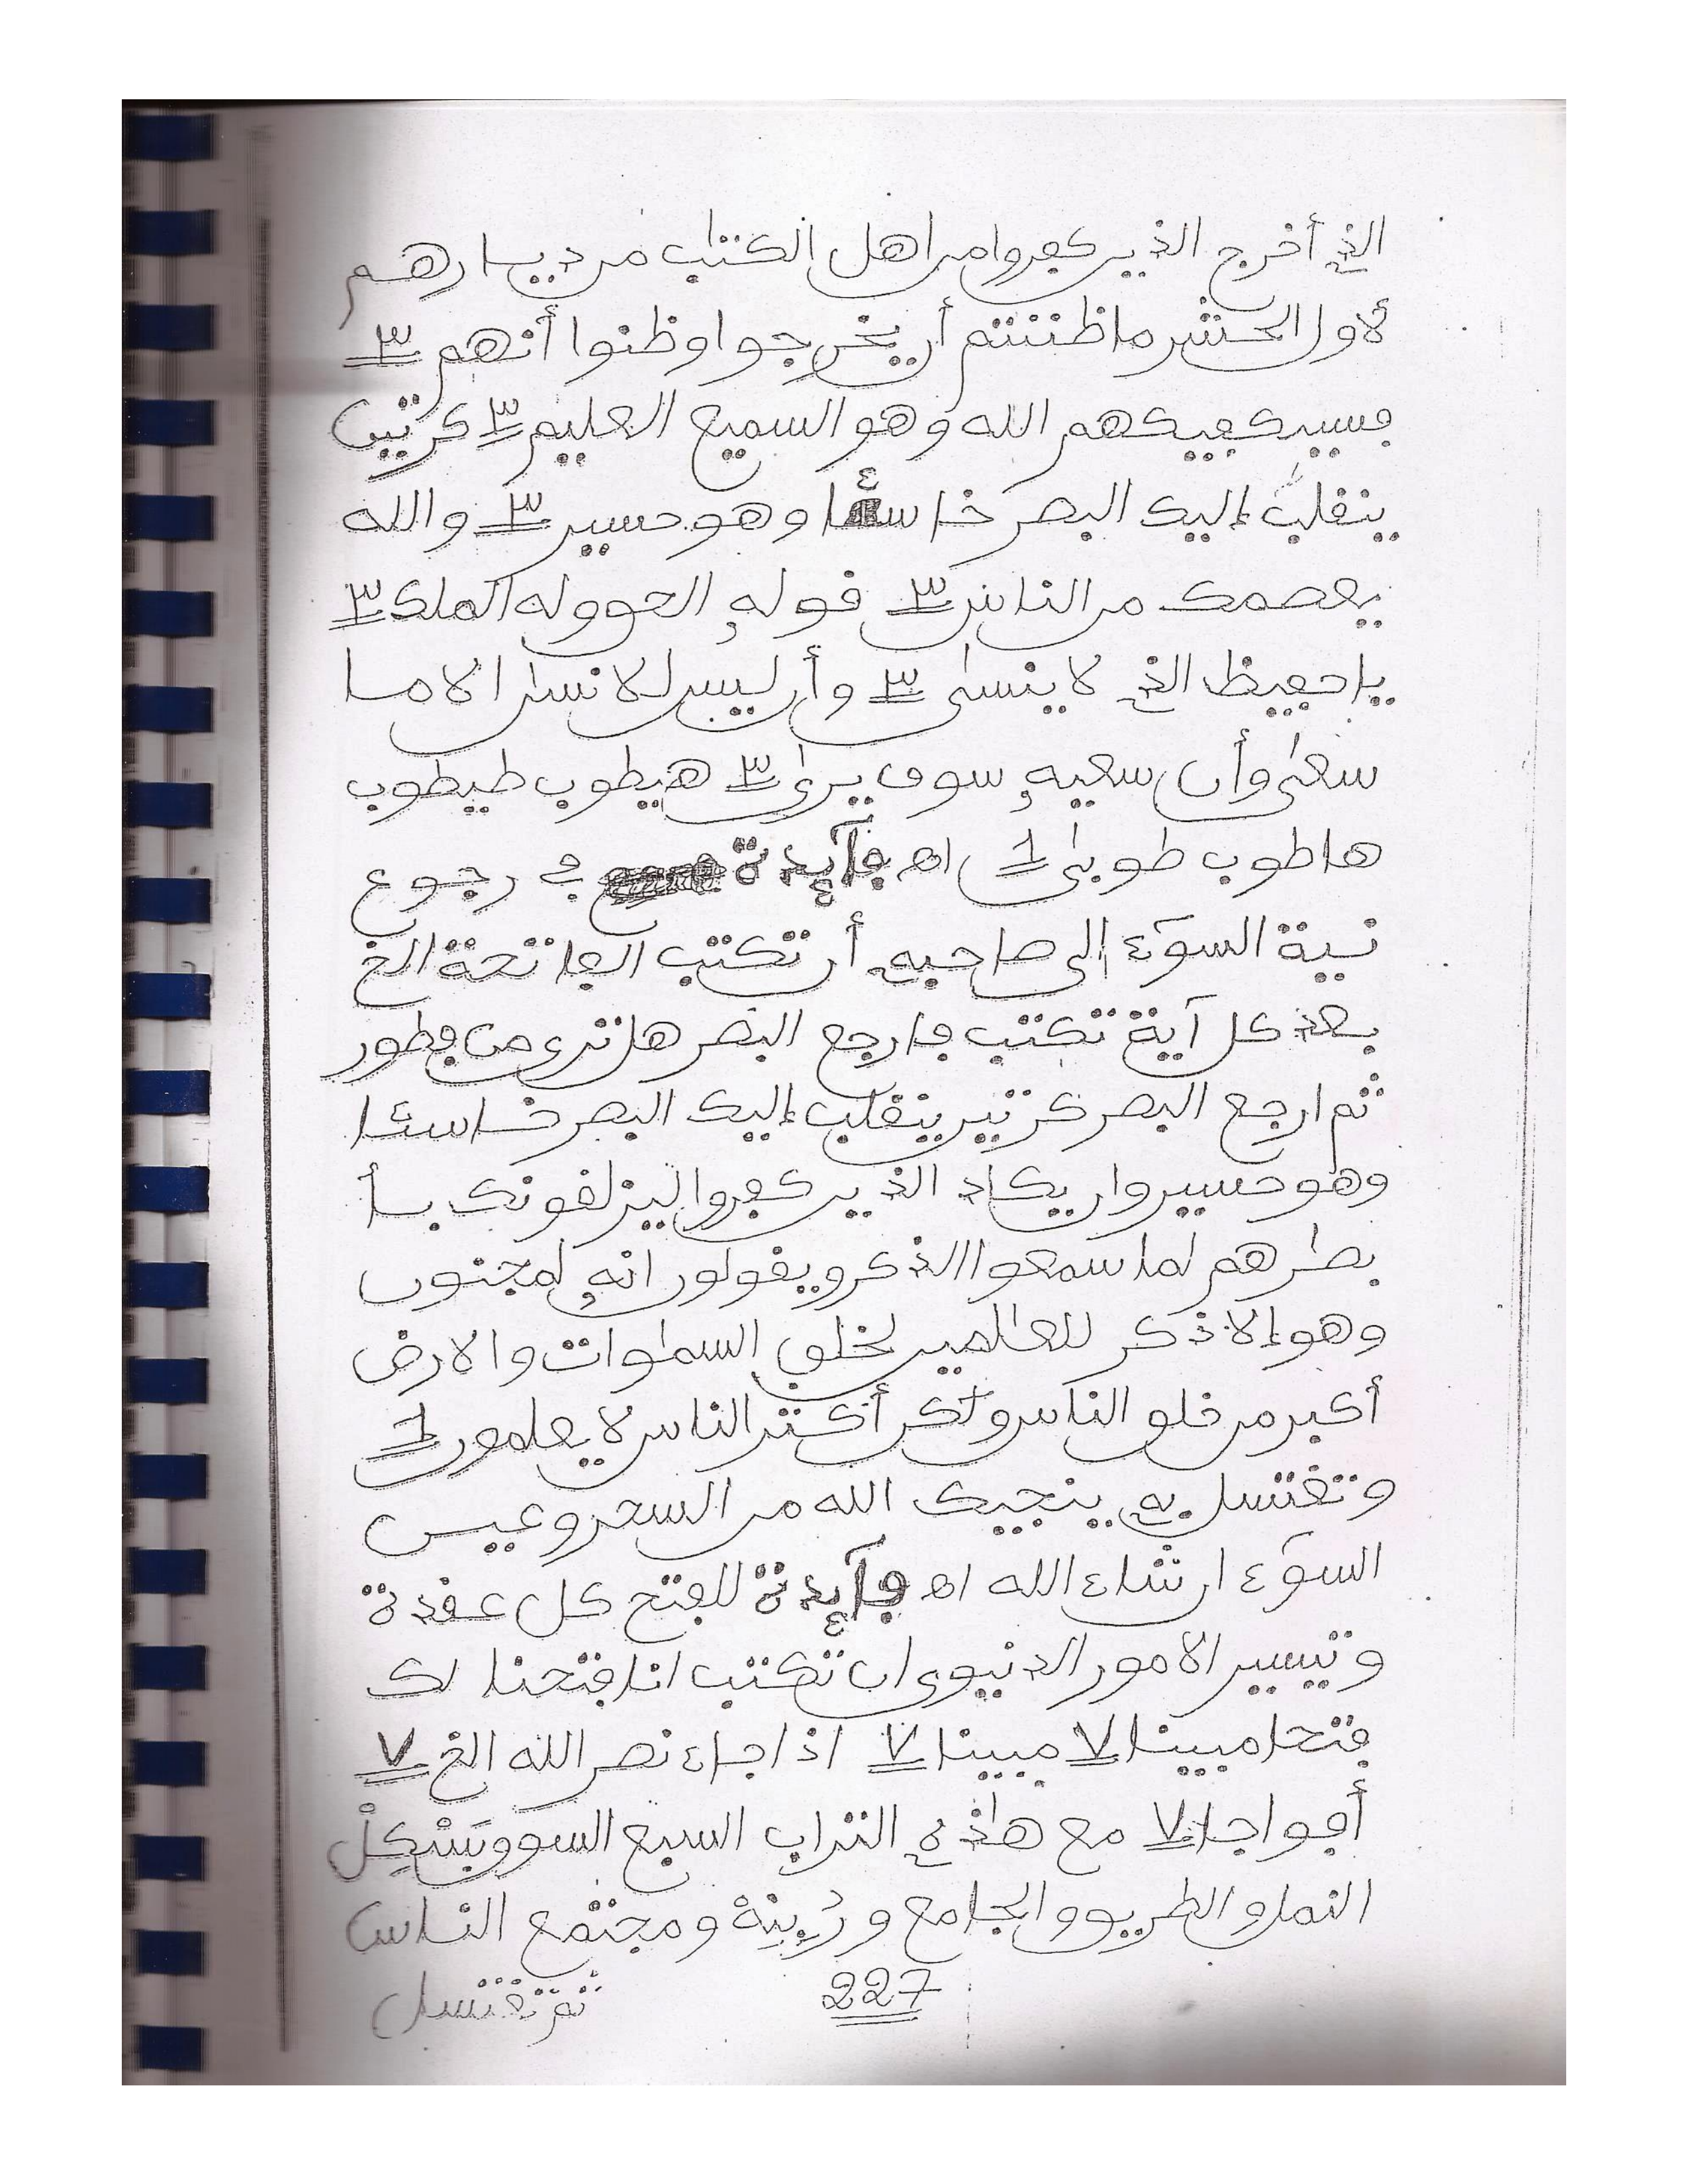 الذے أخرج الذين كفروا من اهل الكتٰب من ديارهم
لأول الحشر ما ظننتم أن يخرجوا وظنوا أنهم ٣
فسيكفيكهم الله وهو السميع العليم ٣ كرتين
ينقلب إليك البصر خاسئا وهو حسير ٣ والله
يعصمك من الناس ٣ قوله الحق وله الملك ٣
يا حفيظ الذے لا ينسى ٣ وأن ليس للانسٰن الا ما
سعىٰ وأن سعيه سوف يرىٰ ٣ هيطوب طيطوب
هاطوب طوبىٰ 1 اه فآيدة في رجوع
نية السوٓء الى صاحبه أن تكتب الفاتحة الخ
بعد كل آية تكتب فارجع البصر هل ترى من فطور
ثم ارجع البصر كرتين ينقلب إليك البصر خاسئا
وهو حسير وان يكاد الذين كفروا ليزلقونك بأ
بصٰرهم لما سمعوا الذكر ويقولون انه لمجنون
وهو إلا ذكر للعٰلمين لخلق السمٰوات والارض
أكبر من خلق الناس ولٰكن أكثر الناس لا يعلمون 1
وتغتسل به ينجيك الله من السحر وعين
السوٓء ان شاء الله اه فآيدة للفتح كل عقدة
وتيسير الامور الدنيوى ان تكتب انا فتحنا لك
فتحا مبينا ٧ مبينا ٧ اذا جاء نصر الله الخ ٧
أفواجا ٧ مع هٰذه التراب السبع السوق وبَسْكِلْ
النمل والطريق والجامع و ومجتمع الناس
227
ثم تغتسل